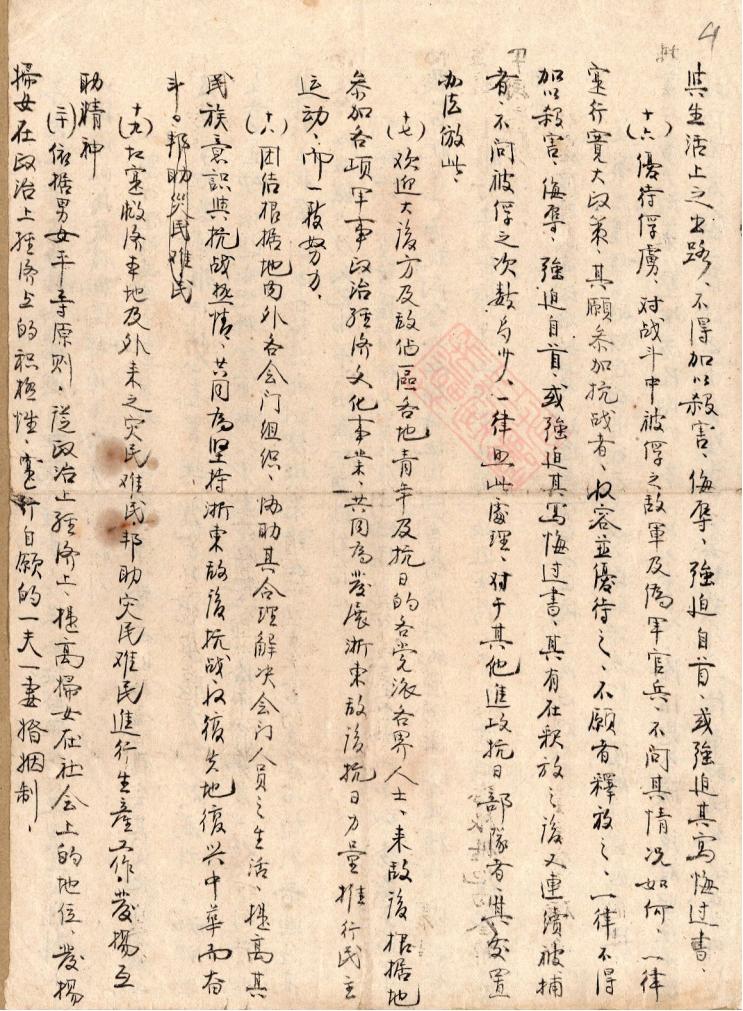 4
與生活上之出路、不得加以殺害、侮辱、強迫自首、或強迫其寫悔过書、
(十六)優待俘虜、对战斗中被俘之敌軍及偽軍官兵、不问其情况如何、一律
寔行寬大政策、其願參加抗战者、收容並優待之、不願者釋放之、一律不得
加以殺害、侮辱、強迫自首、或強迫其写悔过書、其有在釈放之後又連續被捕
者、不问被俘之次数多少、一律照此處理、对于其他進攻抗日部隊者、其處置
办法倣此、
(十七)欢迎大後方及敌佔區各地青年及抗日的各党派各界人士、来敌後根据地
參加各项军事政治经济文化事業、共同為發展浙東敌後抗日力量推行民主
运动、而一致努力、
(十八)团结根据地内外各会门组织、协助其合理解决会门人员之生活、提高其
民族意识與抗战热情、共同為坚持浙東敌後抗战、收復失地復兴中華而奋
斗。邦助災民难民
(十九)切寔救济本地及外来之灾民难民邦助灾民难民進行生產工作、發揚互
助精神
(二十)依据男女平等原则、從政治上经济上、提高婦女在社会上的地位、發揚
婦女在政治上经济上的积極性、寔行自願的一夫一妻婚姻制、